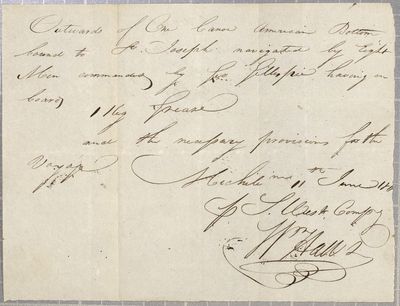 Outwards of One Canoe American Bottom
bound to St. Joseph navigated by Eight
Men commanded by Gillespie having on
board
1 Keg Grease
and the necessary provisions for the
Voyage
11th June
Compy
Wm